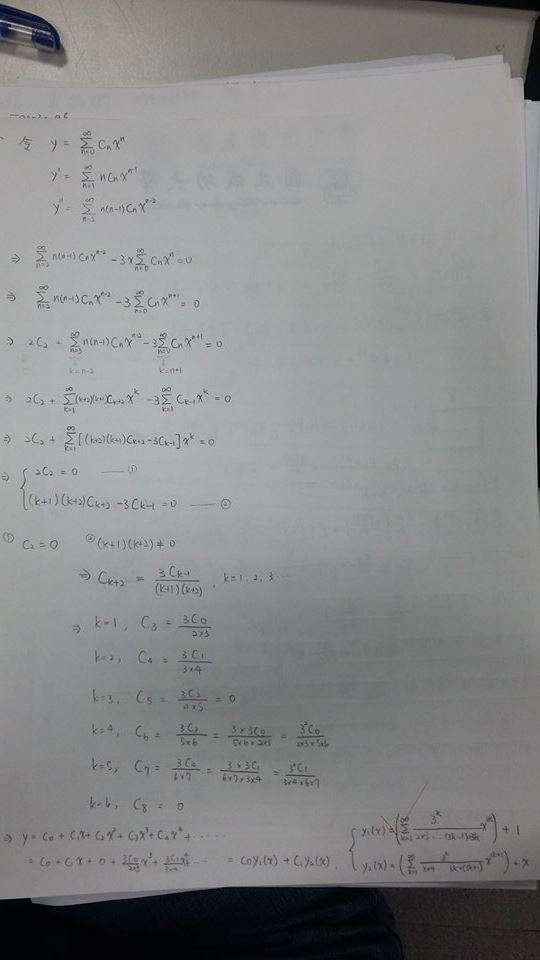 令 y = ∑_{n=0}^{∞} Cnxⁿ
y' = ∑_{n=1}^{∞} nCnxⁿ⁻¹
y'' = ∑_{n=2}^{∞} n(n-1)Cnxⁿ⁻²
⇒ ∑_{n=2}^{∞} n(n-1)Cnxⁿ⁻² - 3x∑_{n=0}^{∞} Cnxⁿ = 0
⇒ ∑_{n=2}^{∞} n(n-1)Cnxⁿ⁻² - 3∑_{n=0}^{∞} Cnxⁿ⁺¹ = 0
⇒ 2C₂ + ∑_{n=3}^{∞} n(n-1)Cnxⁿ⁻² - 3∑_{n=0}^{∞} Cnxⁿ⁺¹ = 0
k=n-2 k=n+1
⇒ 2C₂ + ∑_{k=1}^{∞} (k+2)(k+1)C_{k+2}x^k - 3∑_{k=1}^{∞} C_{k-1}x^k = 0
⇒ 2C₂ + ∑_{k=1}^{∞} [(k+2)(k+1)C_{k+2} - 3C_{k-1}]x^k = 0
⇒ { 2C₂ = 0 —— ①
(k+1)(k+2)C_{k+2} - 3C_{k-1} = 0 —— ②
① C₂ = 0 ② (k+1)(k+2) ≠ 0
⇒ C_{k+2} = 3C_{k-1}/(k+1)(k+2) , k=1, 2, 3 ...
⇒ k=1, C₃ = 3C₀/2×3
k=2, C₄ = 3C₁/3×4
k=3, C₅ = 3C₂/4×5 = 0
k=4, C₆ = 3C₃/5×6 = 3×3C₀/5×6×2×3 = 3²C₀/2×3×5×6
k=5, C₇ = 3C₄/6×7 = 3×3C₁/6×7×3×4 = 3²C₁/3×4×6×7
k=6, C₈ = 0
⇒ y = C₀ + C₁x + C₂x² + C₃x³ + C₄x⁴ + ......
= C₀ + C₁x + 0 + 3C₀/2×3 x³ + 3C₁/3×4 x⁴ ... = C₀y₁(x) + C₁y₂(x),
{ y₁(x) = (∑_{k=1}^{∞} 3^k/2×3 ...... (3k-1)×3k x^{3k}) + 1
y₂(x) = (∑_{k=1}^{∞} 3^k/3×4 ...... 3k×(3k+1) x^{3k+1}) + x